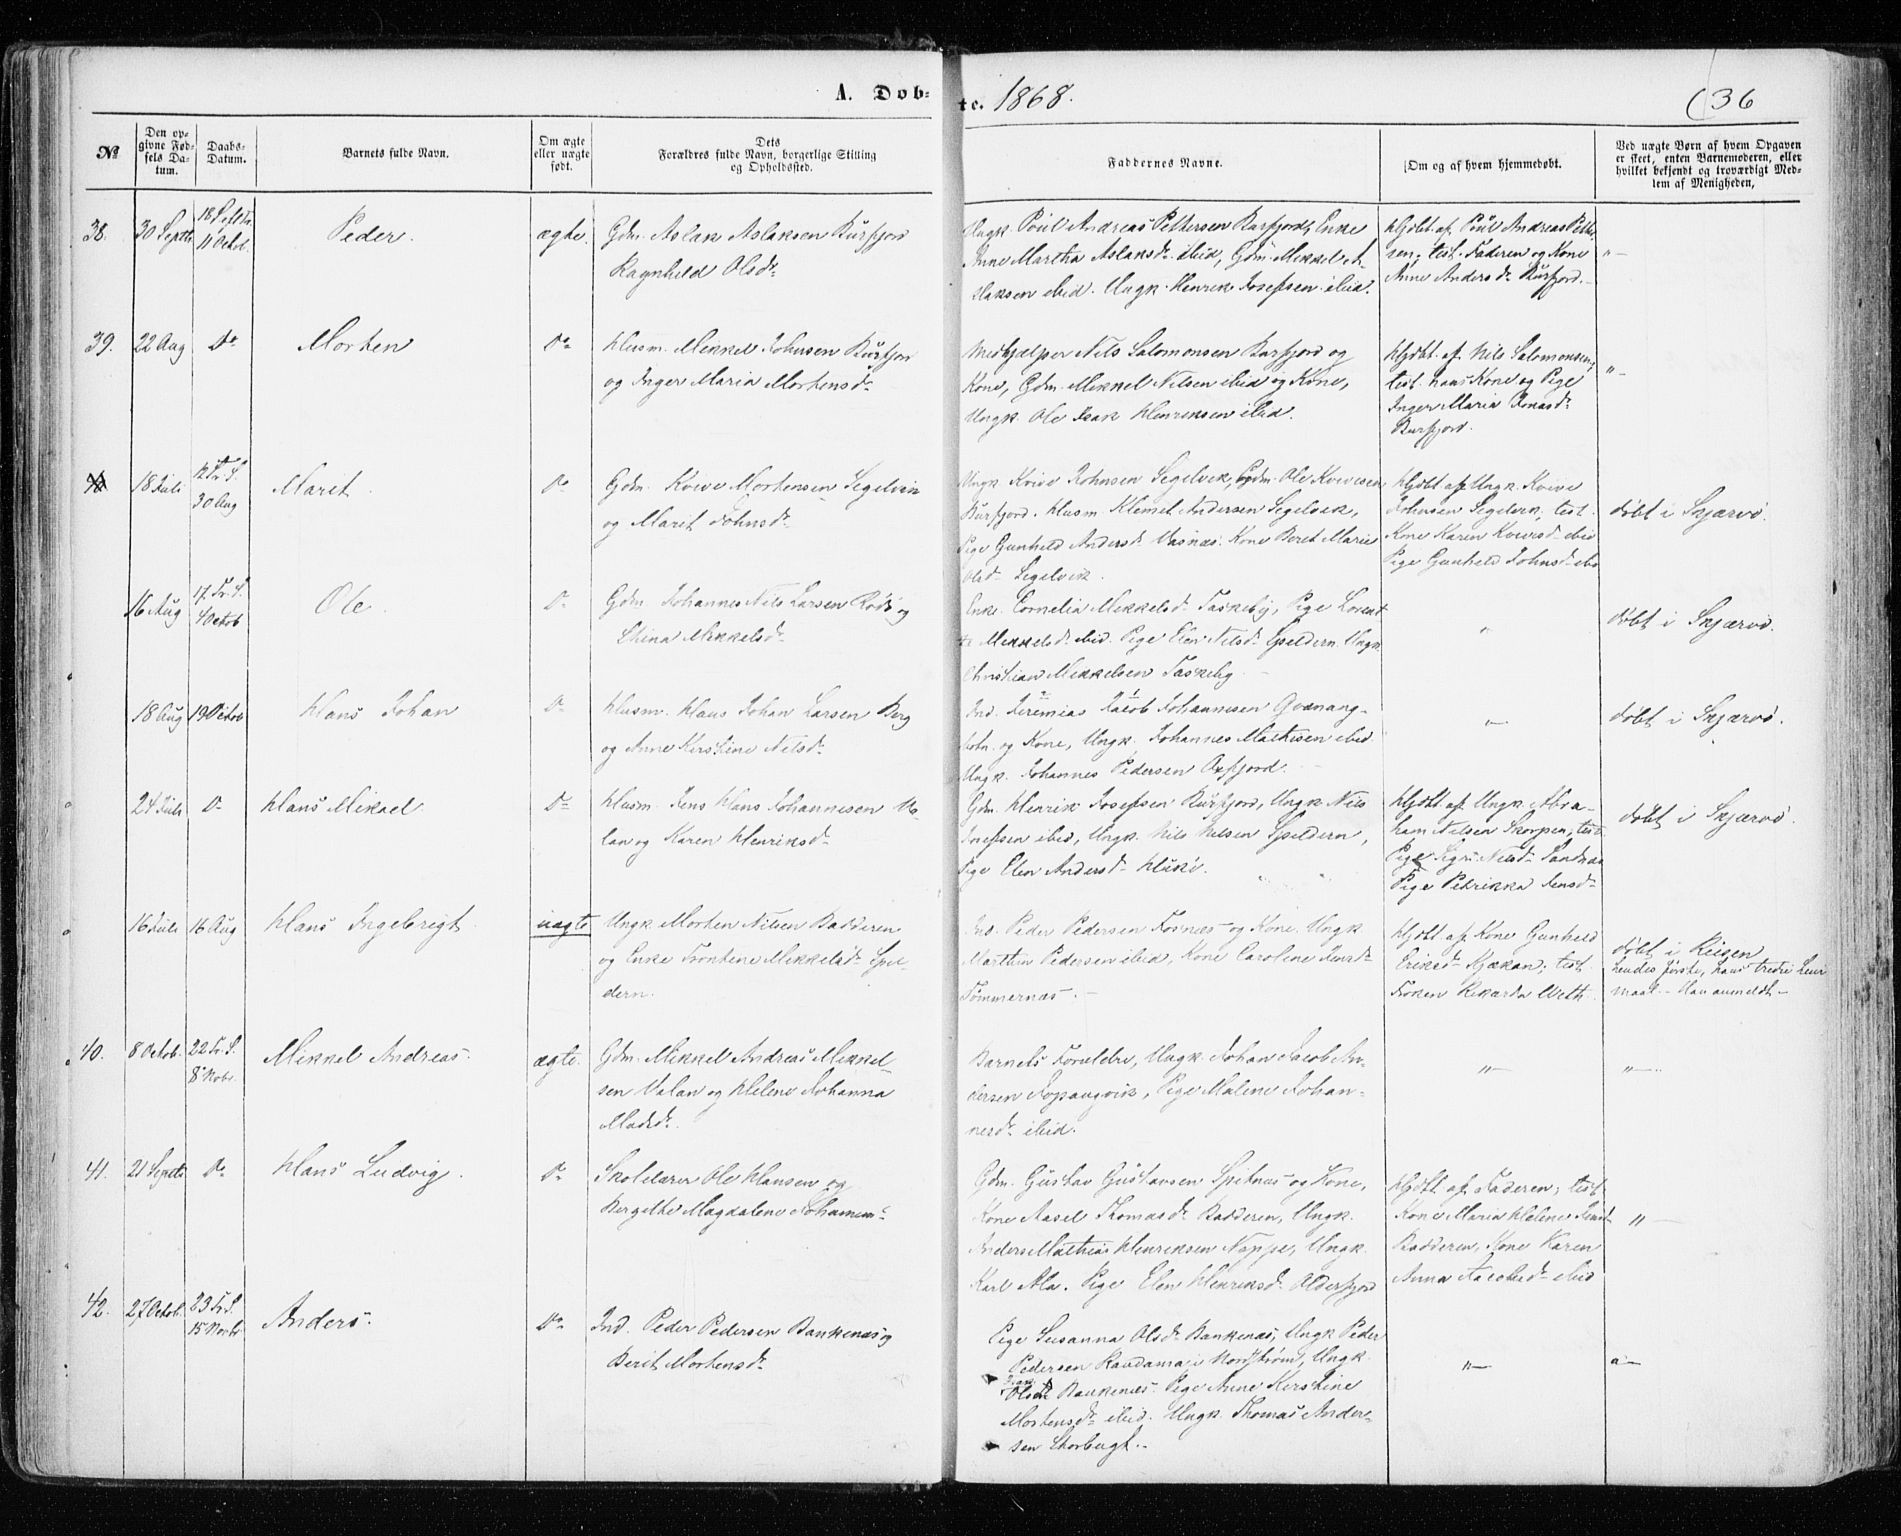 A. Døb-
te. 1868.
36
No
Den opgivne Fødsels Datum.
Daabs-Datum.
Barnets fulde Navn.
Om ægte eller uægte født.
Dets Forældres fulde Navn, borgerlige Stilling og Opholdssted.
Faddernes Navne.
Om og af hvem hjemmedøbt.
Ved uægte Børn af hvem Opgaven er skeet, enten Barnemoderen, eller hvilket bekjendt og troværdigt Medlem af Menigheden,
38. 30 Septb 18 S. e Tr. 11 Octob. Peder. ægte. Gdm. Aslak Aslaksen Burfjord
Ragnhild Olsdr
Ungk. Poul Andreas Pettersen Burfjord, Enke
Anne Martha Aslaksdr ibid, Gdm. Mikkel A-
slaksen ibid. Ungk. Henrik Josefsen ibid.
Hjdbt af Poul Andreas Petter-
sen; test. Faderen og Kone
Anne Andersdr Burfjord.
"-
39. 22 Aug Do Morten Do Husm. Mikkel Johnsen Burfjor
og Inger Maria Mortensdr
Medhjælper Nils Salomonsen Burfjord og
Kone, Gdm. Mikkel Nilsen ibid og Kone,
Ungk. Ole Isak Henriksen ibid.
Hjdbt. af Nils Salomonsen;
test. hans Kone og Pige
Inger Maria Jonasdr
Burfjord.
"-
18 Juli 12 Tr. S. 30 Aug Marit. Do Gdm. Kvive Mortensen Segelvik
og Marit Johnsdr
Ungk. Kvive Johnsen Segelvik, Gdm. Ole Kvivesen
Burfjord. Husm Klemet Andersen Segelvik,
Pige Gunhild Andersdr Vasnæs. Kone Beret Marie
Olsdr Segelvik.
Hjdbt af Ungk. Kvive
Johnsen Segelvik, test.
Kone Karen Kvivesdr ibid
Pige Gunhild Johnsdr ibi
døbt i Skjærvø.
16 Aug 17. Tr. S. 4 Octob Ole. Do Gdm. Johannes Nils Larsen Rødø og
Stina Mikkelsdr
Enke Cornelia Mikkelsdr Taskeby, Pige Lovent-
te Mikkelsdr ibid. Pige Elen Nilsdr Spildern. Ungk
Christian Mikkelsen Taskeby.
"
døbt i Skjærvø.
18 Aug 19 Octob Hans Johan Do Husm. Hans Johan Larsen Berg
og Anne Kirstine Nilsdr
Ind. Jeremias Jacob Johannesen Qvænang-
botn. og Kone, Ungk. Johannes Mathisen ibid.
Ungk. Johannes Pedersen Oxfjord.
"-
døbt i Skjærvø.
24 Juli Do Hans Mikael Do Husm. Jens Hans Johannesen Va-
lan og Karen Henriksdr
Gdm. Henrik Josefsen Burfjord, Ungk Nils
Josefsen ibid, Ungk. Nils Nilsen Spildern,
Pige Elen Andersdr
Hjdbt af Ungk. Abra-
ham Nilsen Skorpen; test
Pige Sigri Nilsdr Sandnæs
Pige Petrikka Jensdr
døbt i Skjærvø.
16 Juli 16 Aug Hans Ingebrigt. uægte Ungk Morten Nilsen Badderen
og Enke Trontene Mikkelsdr Spil-
dern.
Ind. Peder Pedersen Toknæs og Kone. Ungk.
Marthin Pedersen ibid, Kone Caroline Jensdr
Tømmernæs.
Hjdbt af Kone Gunhild
Eriksdr Kjækan; test.
Frøken Rikarda Weth.
døbt i Reisen
hendes første, hans tredie Leier
maal. Han anmeldt
40. 8 Octob. 22 Tr. S. 8 Nobr. Mikkel Andreas. ægte. Gdm. Mikkel Andreas Mikkel-
sen Valan og Helene Johanna
Madsdr.
Barnets Forældre, Ungk. Johan Jacob An-
dersen Jopangvik, Pige Malene Johan-
nesdr ibid.
"-
"-
41. 21 Septb Do Hans Ludvig. Do Skolelærer Ole Hansen og
Bergithe Magdalene
Gdm. Gustav Gustavsen Spitnæs og Kone,
Kone Aasel Thomasdr Badderen, Ungk.
Anders Mathias Henriksen Noppe, Ungk.
Karl Ala. Pige Elen Henriksdr Alderfjord
Hjdbt. af Faderen; test.
Kone Maria Helene
Badderen, Kone Karen
Anna Jacobsdr ibid
"-
42. 27 Octob. 23 Tr. S. 15 Novbr. Anders. Do Ind. Peder Pedersen Bankenæs og
Berit Mortensdr
Pige Susanna Olsdr Bankenæs, Ungk Peder
Pedersen Raudama i Nordstrøm, Ungk.
Bankenæs. Pige Anne Kirstine
Mortensdr ibid. Ungk. Thomas Ander-
sen Storbugt.
"-
"-